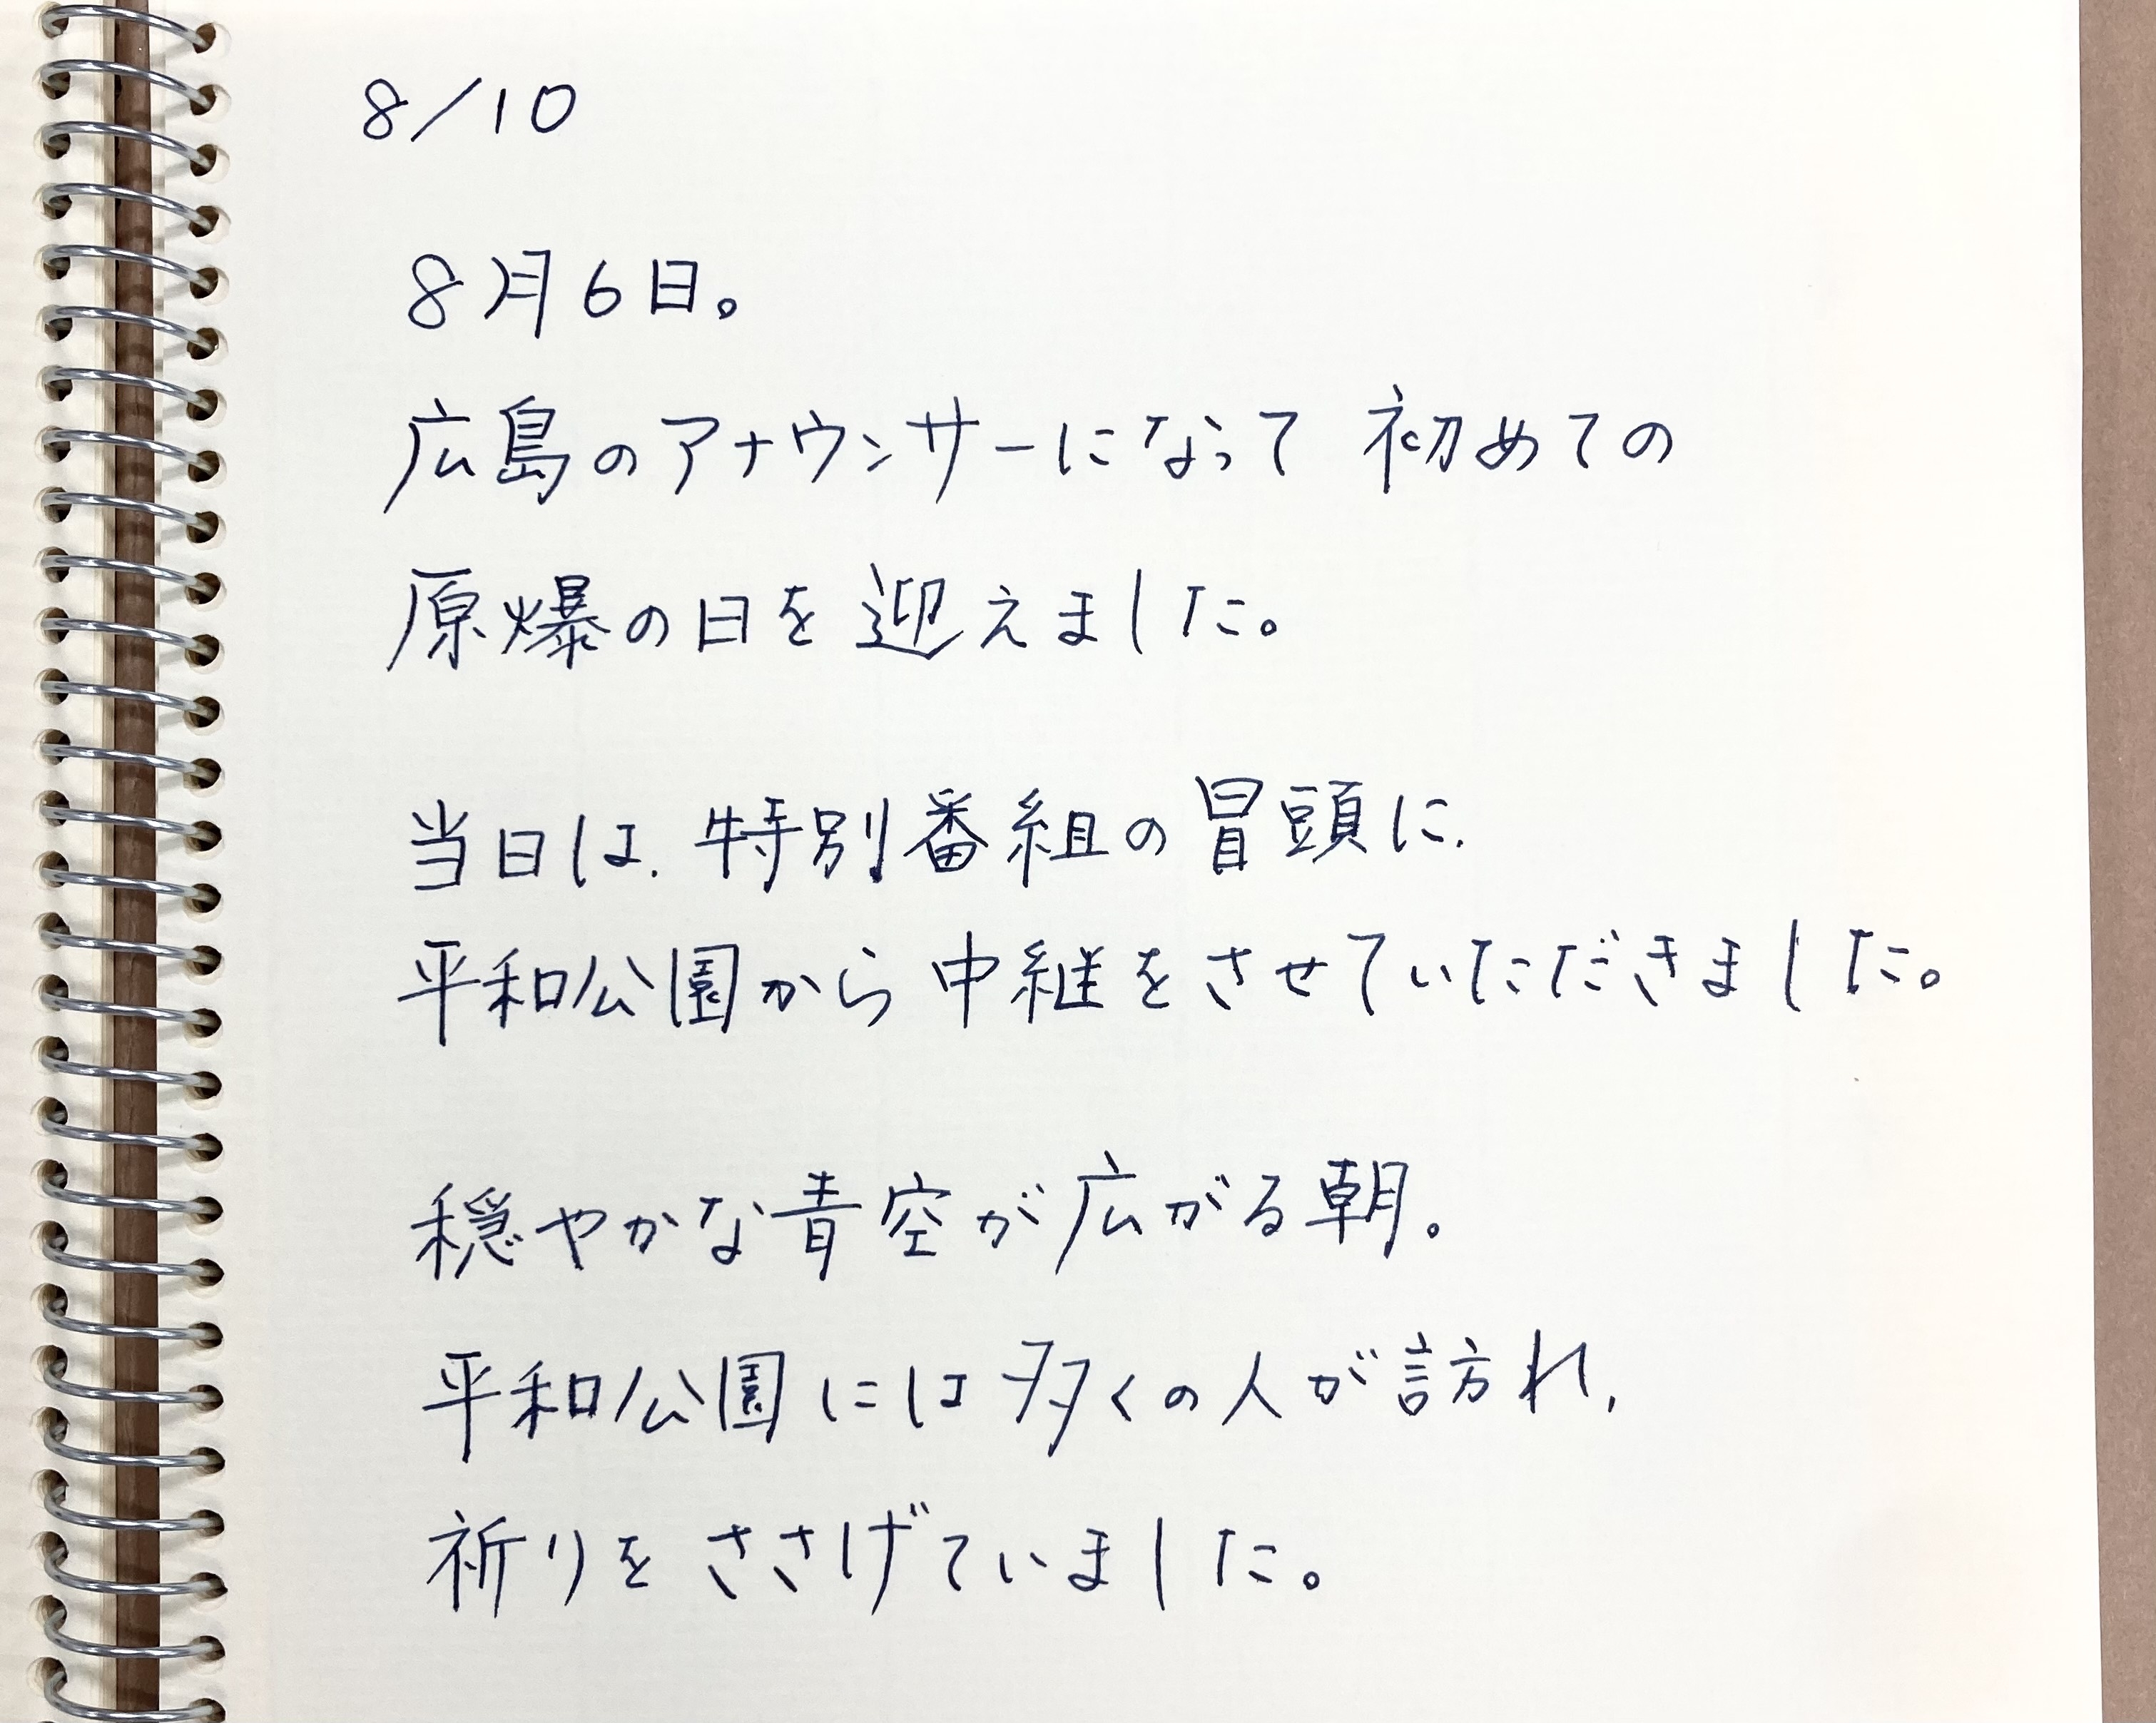 8/10
8月6日。
広島のアナウンサーになって 初めての
原爆の日を迎えました。
当日は、特別番組の冒頭に、
平和公園から中継をさせていただきました。
穏やかな青空が広がる朝。
平和公園には多くの人が訪れ、
祈りをささげていました。